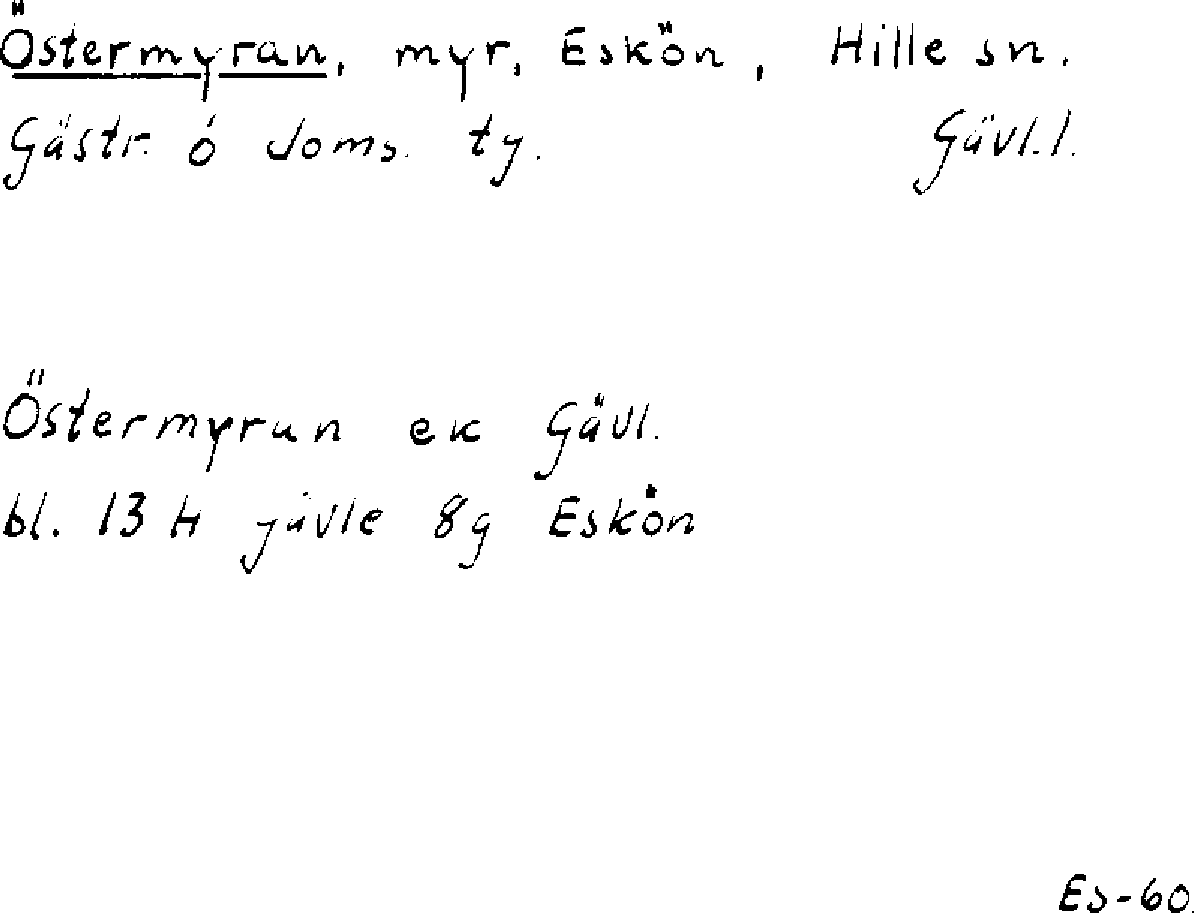 Östermyran, myr, Eskön, Hille sn.
Gästr. ö doms. ty. Gävl.l.
Östermyran ek Gävl.
bl. 13 H gävle 8g Eskön
Es-60.